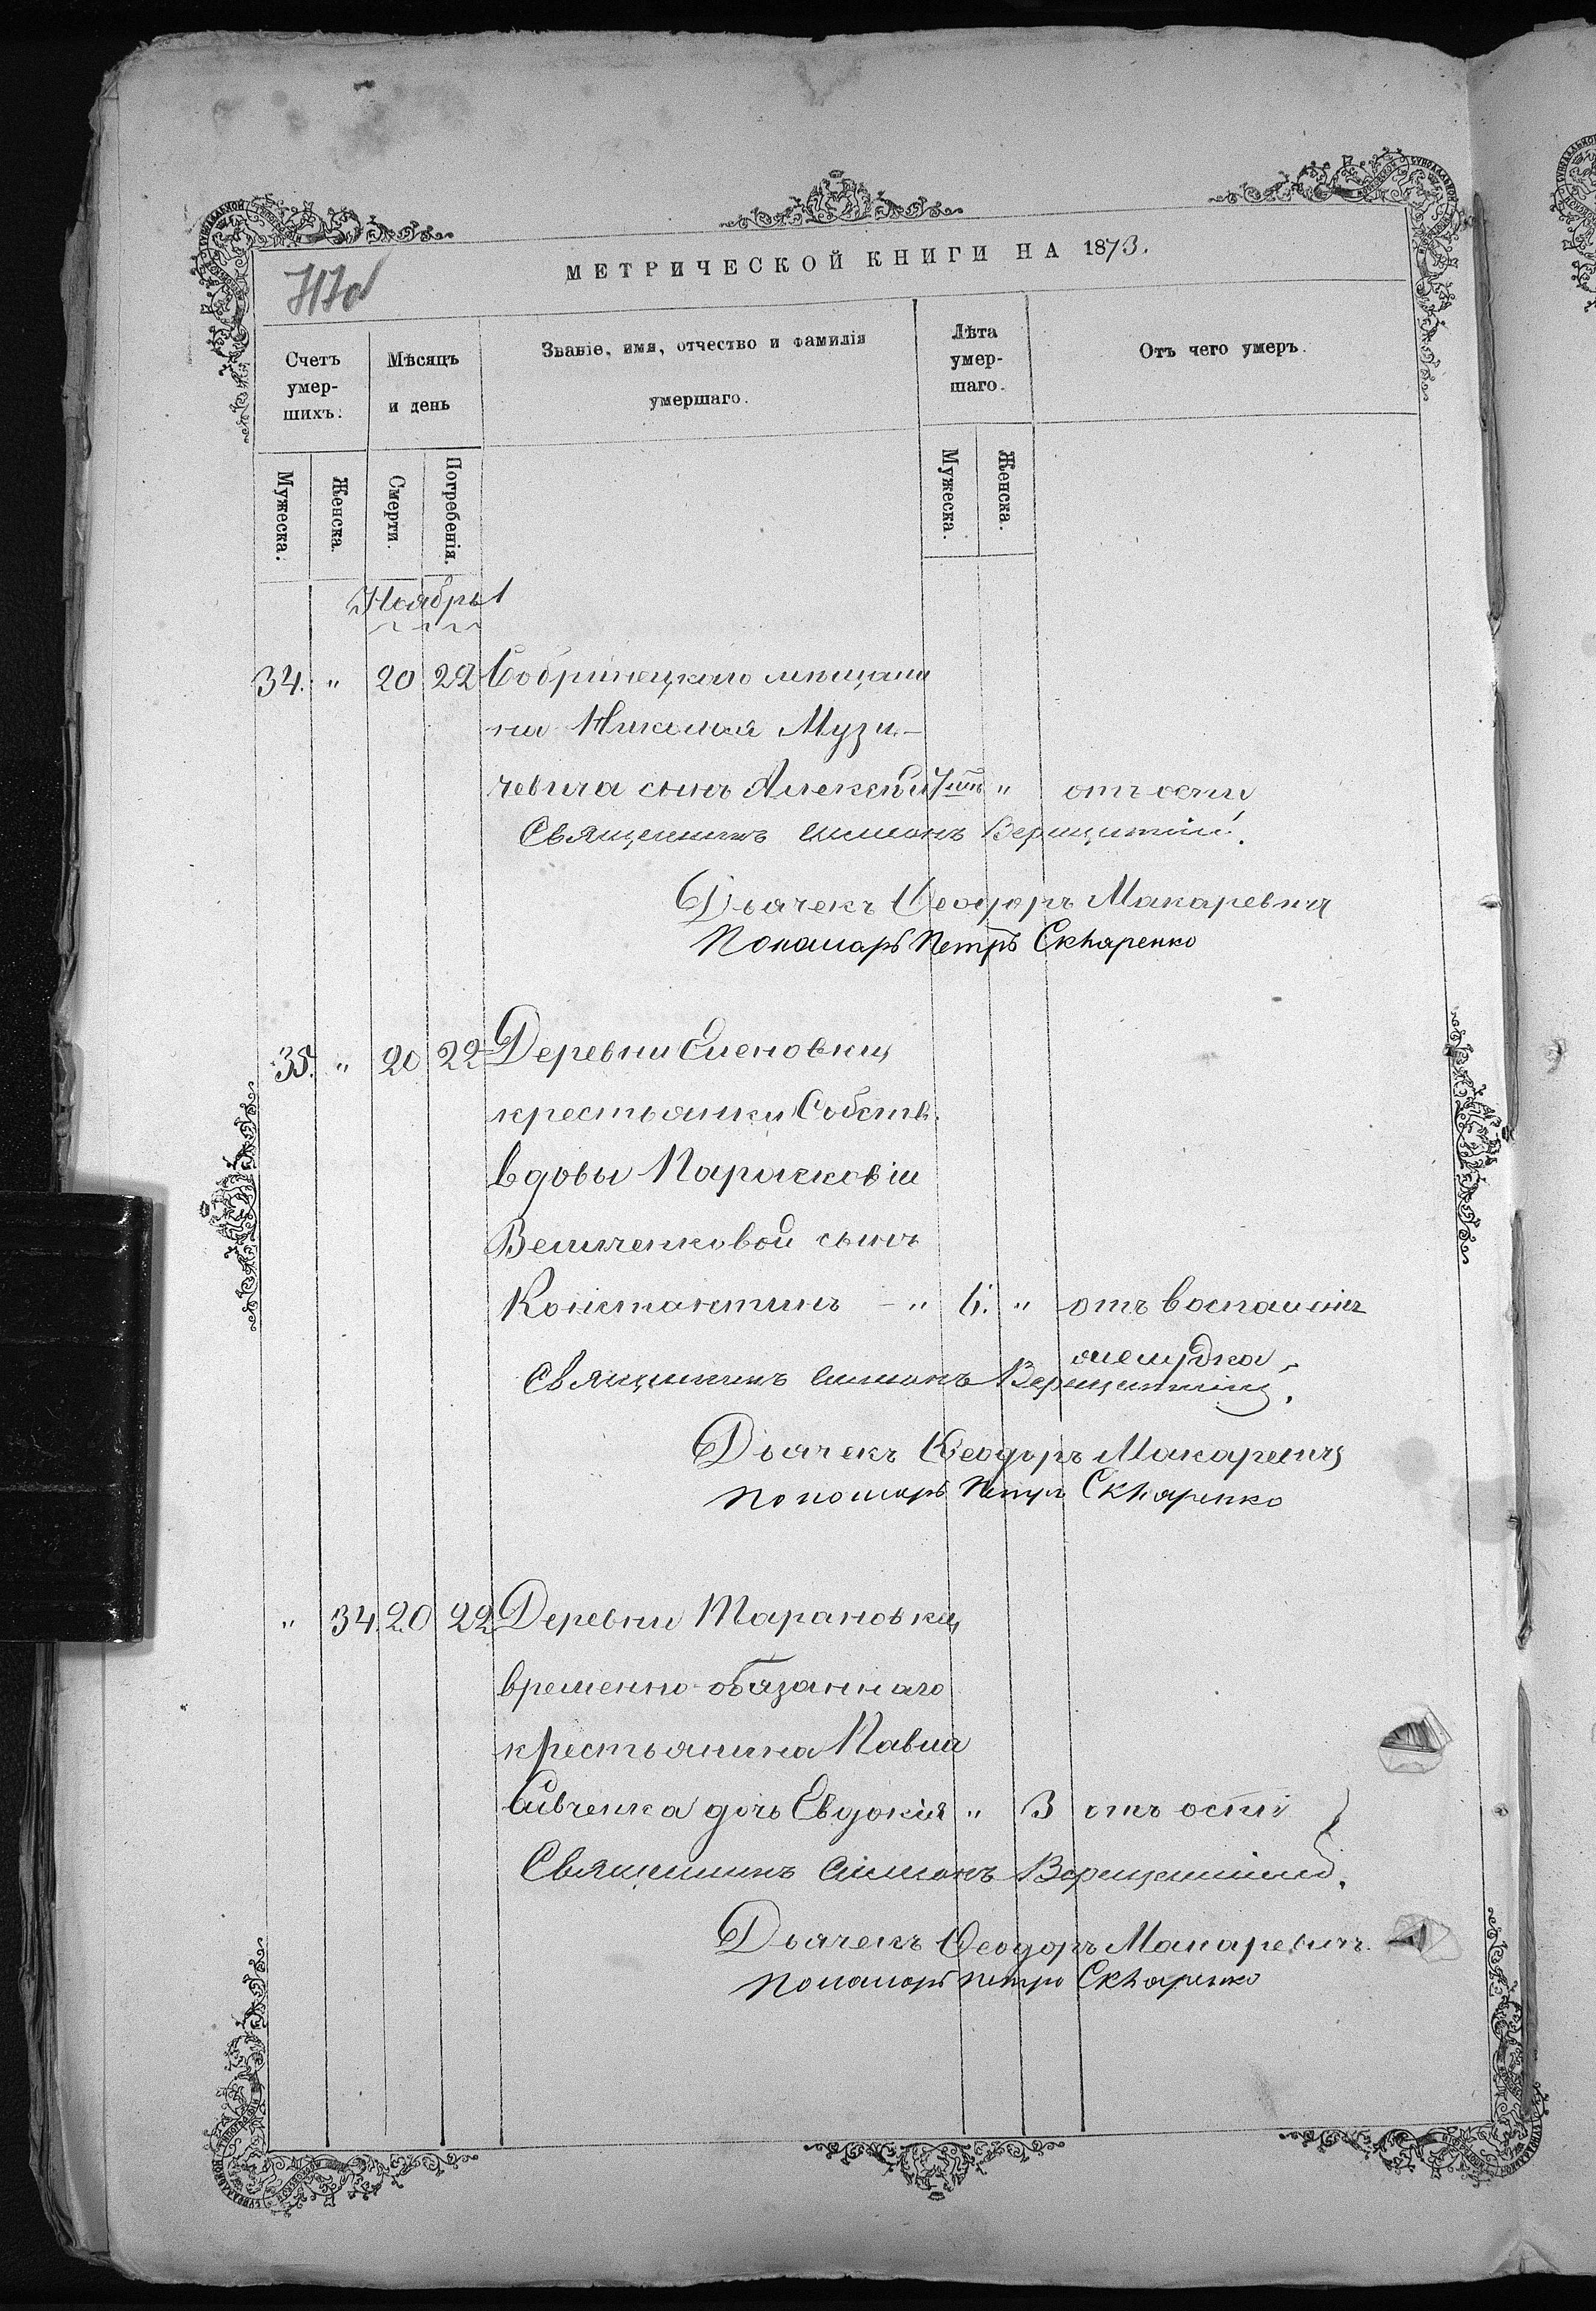 МЕТРИЧЕСКОЙ КНИГИ НА 1873.
Счетъ умер-шихъ.
Мѣсяцъ и день
Званіе, имя, отчество и фамилія умершаго.
Лѣта умер-шаго.
Отъ чего умеръ.
Мужеска.
Женска.
Смерти.
Погребенія.
Мужеска.
Женска.
Ноябрь
34. " 20 22 Бобринецкаго мѣщани
на Николая Музи-
чевича сынъ Алексѣй 7 " отъ оспы
Священникъ Симонъ
Дьячекъ Ѳеодоръ Макаревич
Пономарь Петръ Скляренко
35. " 20 22 Деревни Еленовки
крестьянки Собств.
вдовы Парасковіи
Величенковой сынъ
Константинъ - " 6. " отъ воспаленія
желудка
Священникъ Симонъ
Дьячекъ Ѳеодоръ Макаревич
Пономарь Петръ Скляренко
" 34. 20 22 Деревни Тарановки
временно-обязаннаго
крестьянина Павла
Сивченка дочь Евдокія " 3 отъ оспы
Священникъ Симонъ
Дьячекъ Ѳеодоръ Макаревичъ.
Пономарь Петръ Скляренко